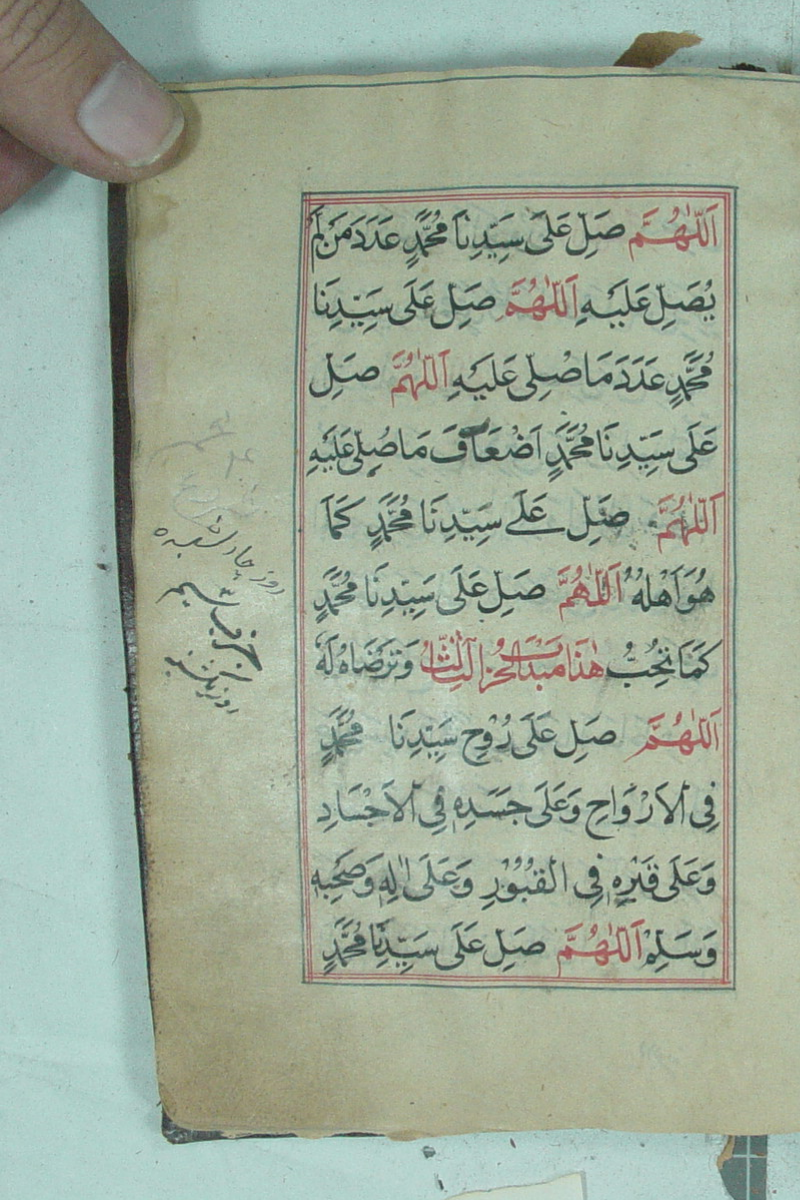 اَللّٰهُمَّ صَلِّ عَلَى سَيِّدِنَا مُحَمَّدٍ عَدَدَ مَنْ لَمْ
يُصَلِّ عَلَيْهِ اَللّٰهُمَّ صَلِّ عَلَى سَيِّدِنَا
مُحَمَّدٍ عَدَدَ مَا صُلِّى عَلَيْهِ اَللّٰهُمَّ صَلِّ
عَلَى سَيِّدِنَا مُحَمَّدٍ اَضْعَافَ مَا صُلِّى عَلَيْهِ
اَللّٰهُمَّ صَلِّ عَلَے سَيِّدِنَا مُحَمَّدٍ كَمَا
هُوَ اَهْلُهُ اَللّٰهُمَّ صَلِّ عَلَى سَيِّدِنَا مُحَمَّدٍ
كَمَا تُحِبُّ هٰذَا مبدأ الحزب الثالث وَتَرْضَاهُ لَهُ
اَللّٰهُمَّ صَلِّ عَلَى رُوْحِ سَيِّدِنَا مُحَمَّدٍ
فِى الاَرْوَاحِ وَعَلَى جَسَدِهِ فِى الاَجْسَادِ
وَعَلَى قَبْرِهِ فِى القُبُوْرِ وَعَلَى اٰلِهِ وَصَحْبِهِ
وَسَلِّمْ اَللّٰهُمَّ صَلِّ عَلَى سَيِّدِنَا مُحَمَّدٍ
روز چهارشنبه
حزب
روز